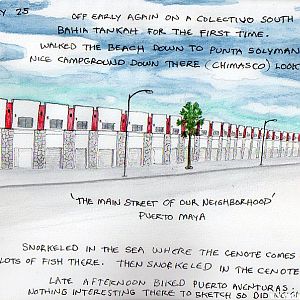 Y 25
OFF EARLY AGAIN ON A COLECTIVO SOUTH
BAHIA TANKAH FOR THE FIRST TIME.
WALKED THE BEACH DOWN TO PUNTA SOLYMAN
NICE CAMPGROUND DOWN THERE (CHIMASCO) LOOK
'THE MAIN STREET OF OUR NEIGHBORHOOD'
PUERTO MAYA
SNORKELED IN THE SEA WHERE THE CENOTE COMES
LOTS OF FISH THERE. THEN SNORKELED IN THE CENOTE
LATE AFTERNOON BIKED PUERTO AVENTURAS.
NOTHING INTERESTING THERE TO SKETCH SO DID